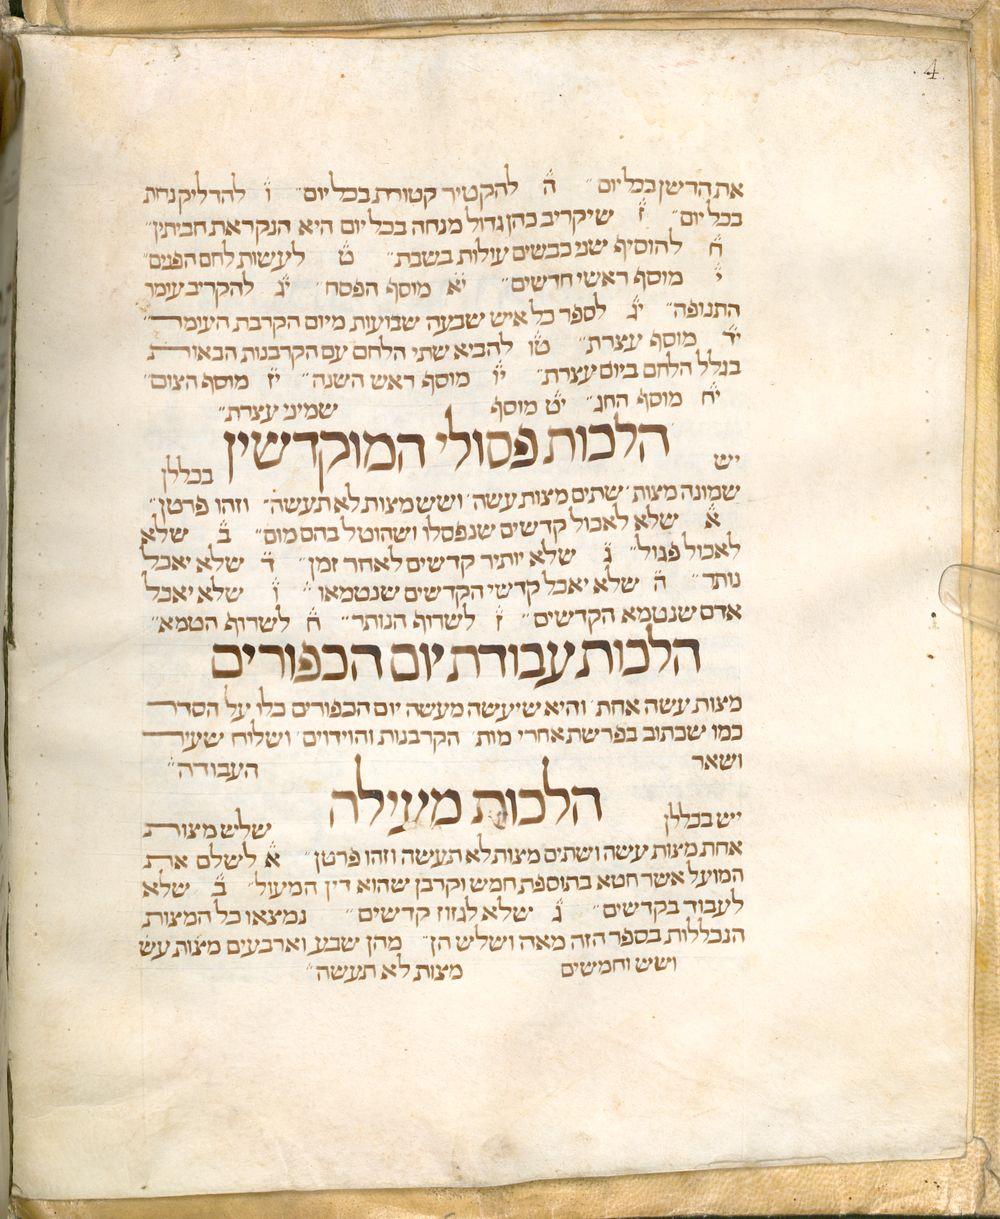 4
את הדשן בכל יום״ ה להקטיר קטורת בכל יום״ ו להדליק נרות
בכל יום״ ז שיקריב כהן גדול מנחה בכל יום היא הנקראת חביתין״
ח להוסיף שני כבשים עולות בשבת״ ט לעשות לחם הפנים״
י מוסף ראשי חדשים״ יא מוסף הפסח״ יב להקריב עומר
התנופה״ יג לספר כל איש שבעה שבועות מיום הקרבת העומר״
יד מוסף עצרת״ טו להביא שתי הלחם עם הקרבנות הבאות
בגלל הלחם ביום עצרת״ יו מוסף ראש השנה״ יז מוסף הצום״
יח מוסף החג״ יט מוסף שמיני עצרת״
הלכות פסולי המוקדשין
יש בכללן
שמונה מצות׳ שתים מצות עשה׳ ושש מצות לא תעשה״ וזהו פרטן״
א שלא לאכול קדשים שנפסלו ושהוטל בהם מום״ ב שלא
לאכול פגול״ ג שלא יותיר קדשים לאחר זמן״ ד שלא יאכל
נותר״ ה שלא יאכל קדשי הקדשים שנטמאו״ ו שלא יאכל
אדם שנטמא הקדשים״ ז לשרוף הנותר״ ח לשרוף הטמא״
הלכות עבודת יום הכפורים
מצות עשה אחת׳ והיא שיעשה מעשה יום הכפורים כלו על הסדר
כמו שכתוב בפרשת אחרי מות׳ הקרבנות והוידוים׳ ושלוח שעיר
ושאר העבודה״
הלכות מעילה
יש בכללן שלש מצות
אחת מצות עשה ושתים מצות לא תעשה וזהו פרטן״ א לשלם את
המועל אשר חטא בתוספת חמש וקרבן שהוא דין המעול״ ב שלא
לעבוד בקדשים״ ג שלא לגזוז קדשים״ נמצאו כל המצות
הנכללות בספר הזה מאה ושלש הן״ מהן שבע וארבעים מצות עש
ושש וחמשים מצות לא תעשה״